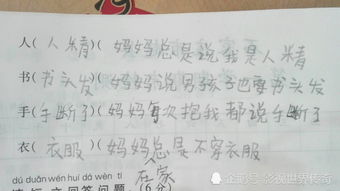 人(人精)(妈妈总是说我是人精
书(书头发)(妈妈说男孩子也要书头发
手(手断了)(妈妈每次抱我都说手断了
衣(衣服)(妈妈总是不穿衣服
在家
dú duǎn wén huí dá wèn tí
短文回答问题。(6分)
企鹅号 影视世界传奇